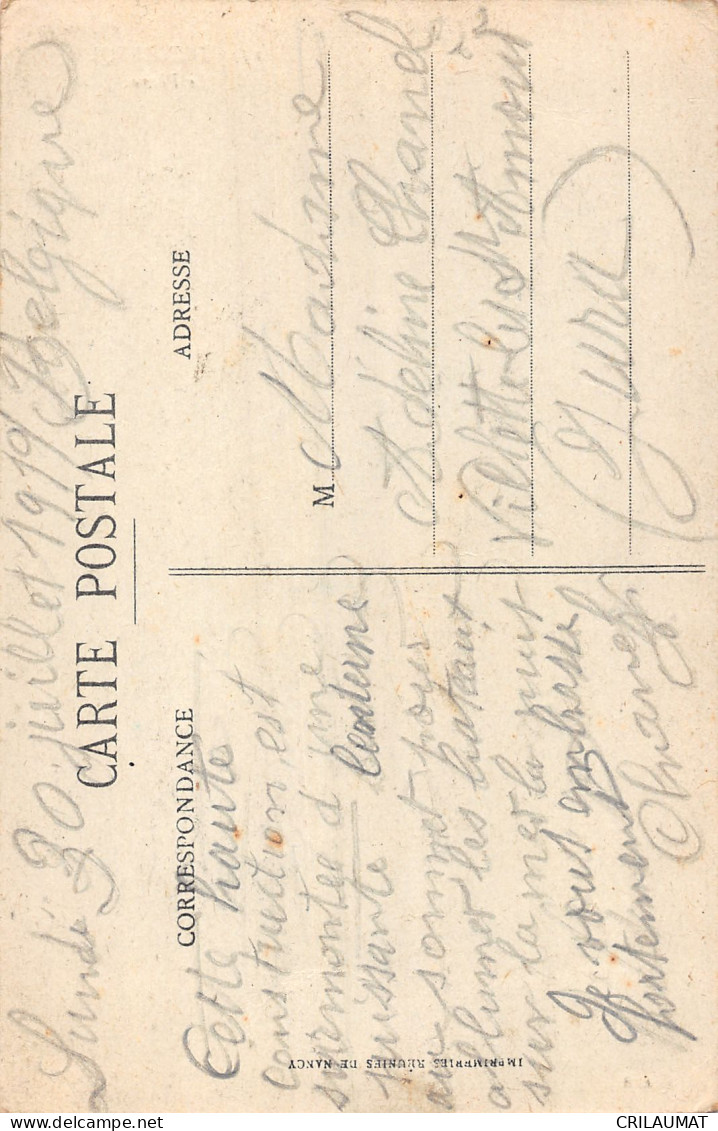 Lundi 30 juillet 1919 Belgique
CARTE POSTALE
CORRESPONDANCE
Cette haute
construction est
surmontée d'une
puissante lanterne
au sommet pour
allumer les bateaux
sur la mer la nuit
Je vous embrasse
fortement
Chanel
ADRESSE
M Madame
Adeline Chanel
St Amour
Jura
IMPRIMERIES RÉUNIES DE NANCY
CRILAUMAT